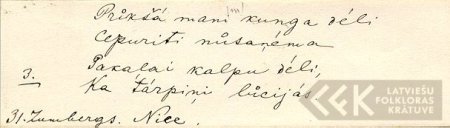 Prikšā mani kunga dēli
Cepuriti nůtaņēma
3. Pakalai kalpu dēli,
Ka tārpiņi lůcijās.
31. Zumbergs. Nīce.
LATVIEŠU
FOLKLORAS
KRĀTUVE